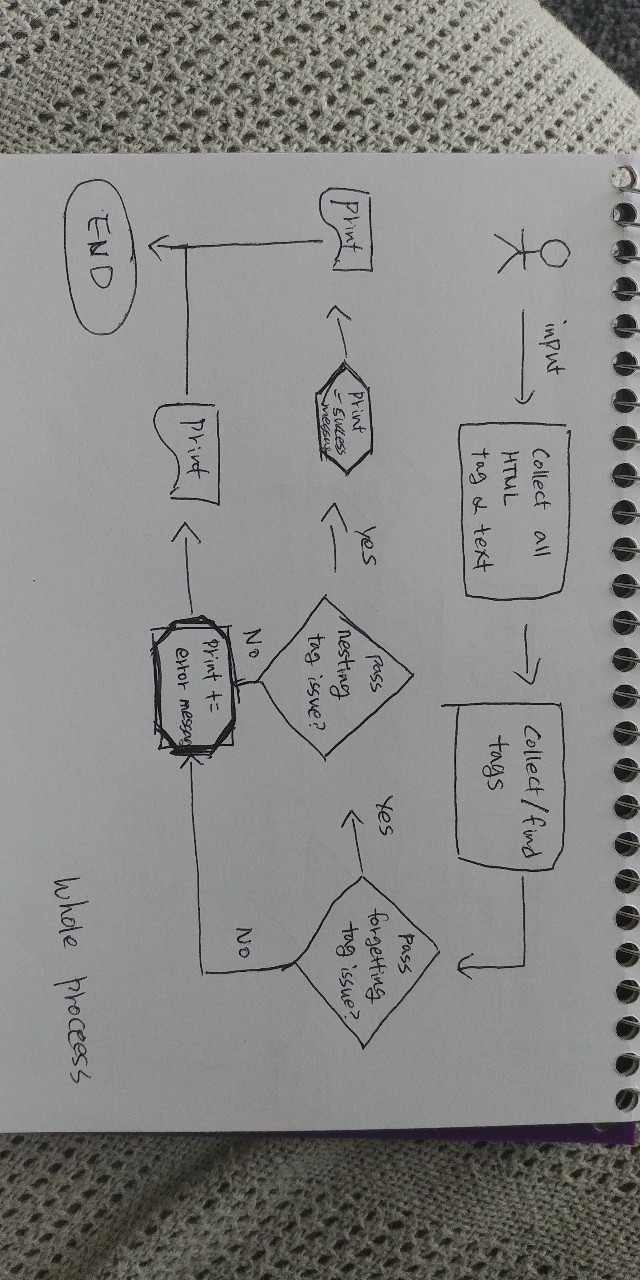 input
Collect all
HTML
tag & text
Collect/find
tags
pass
forgetting
tag issue?
yes
pass
nesting
tag issue?
yes
print
= success
messag
print
No
No
print +=
error messag
print
END
Whole proceess